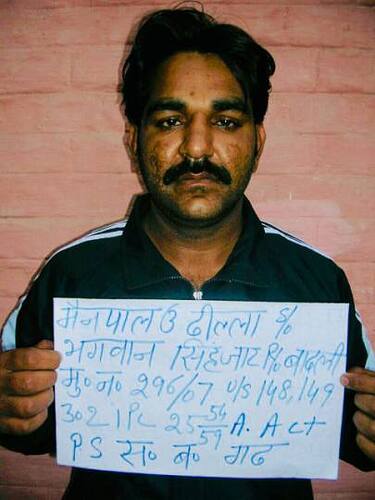 मैनपाल उ ढील्ला s/o
भगवान सिंह जाट R/o बादली
मु॰ न॰ 296/07 u/s 148,149
302 IPC 25-54-59 A. Act
PS स॰ ब॰ गढ